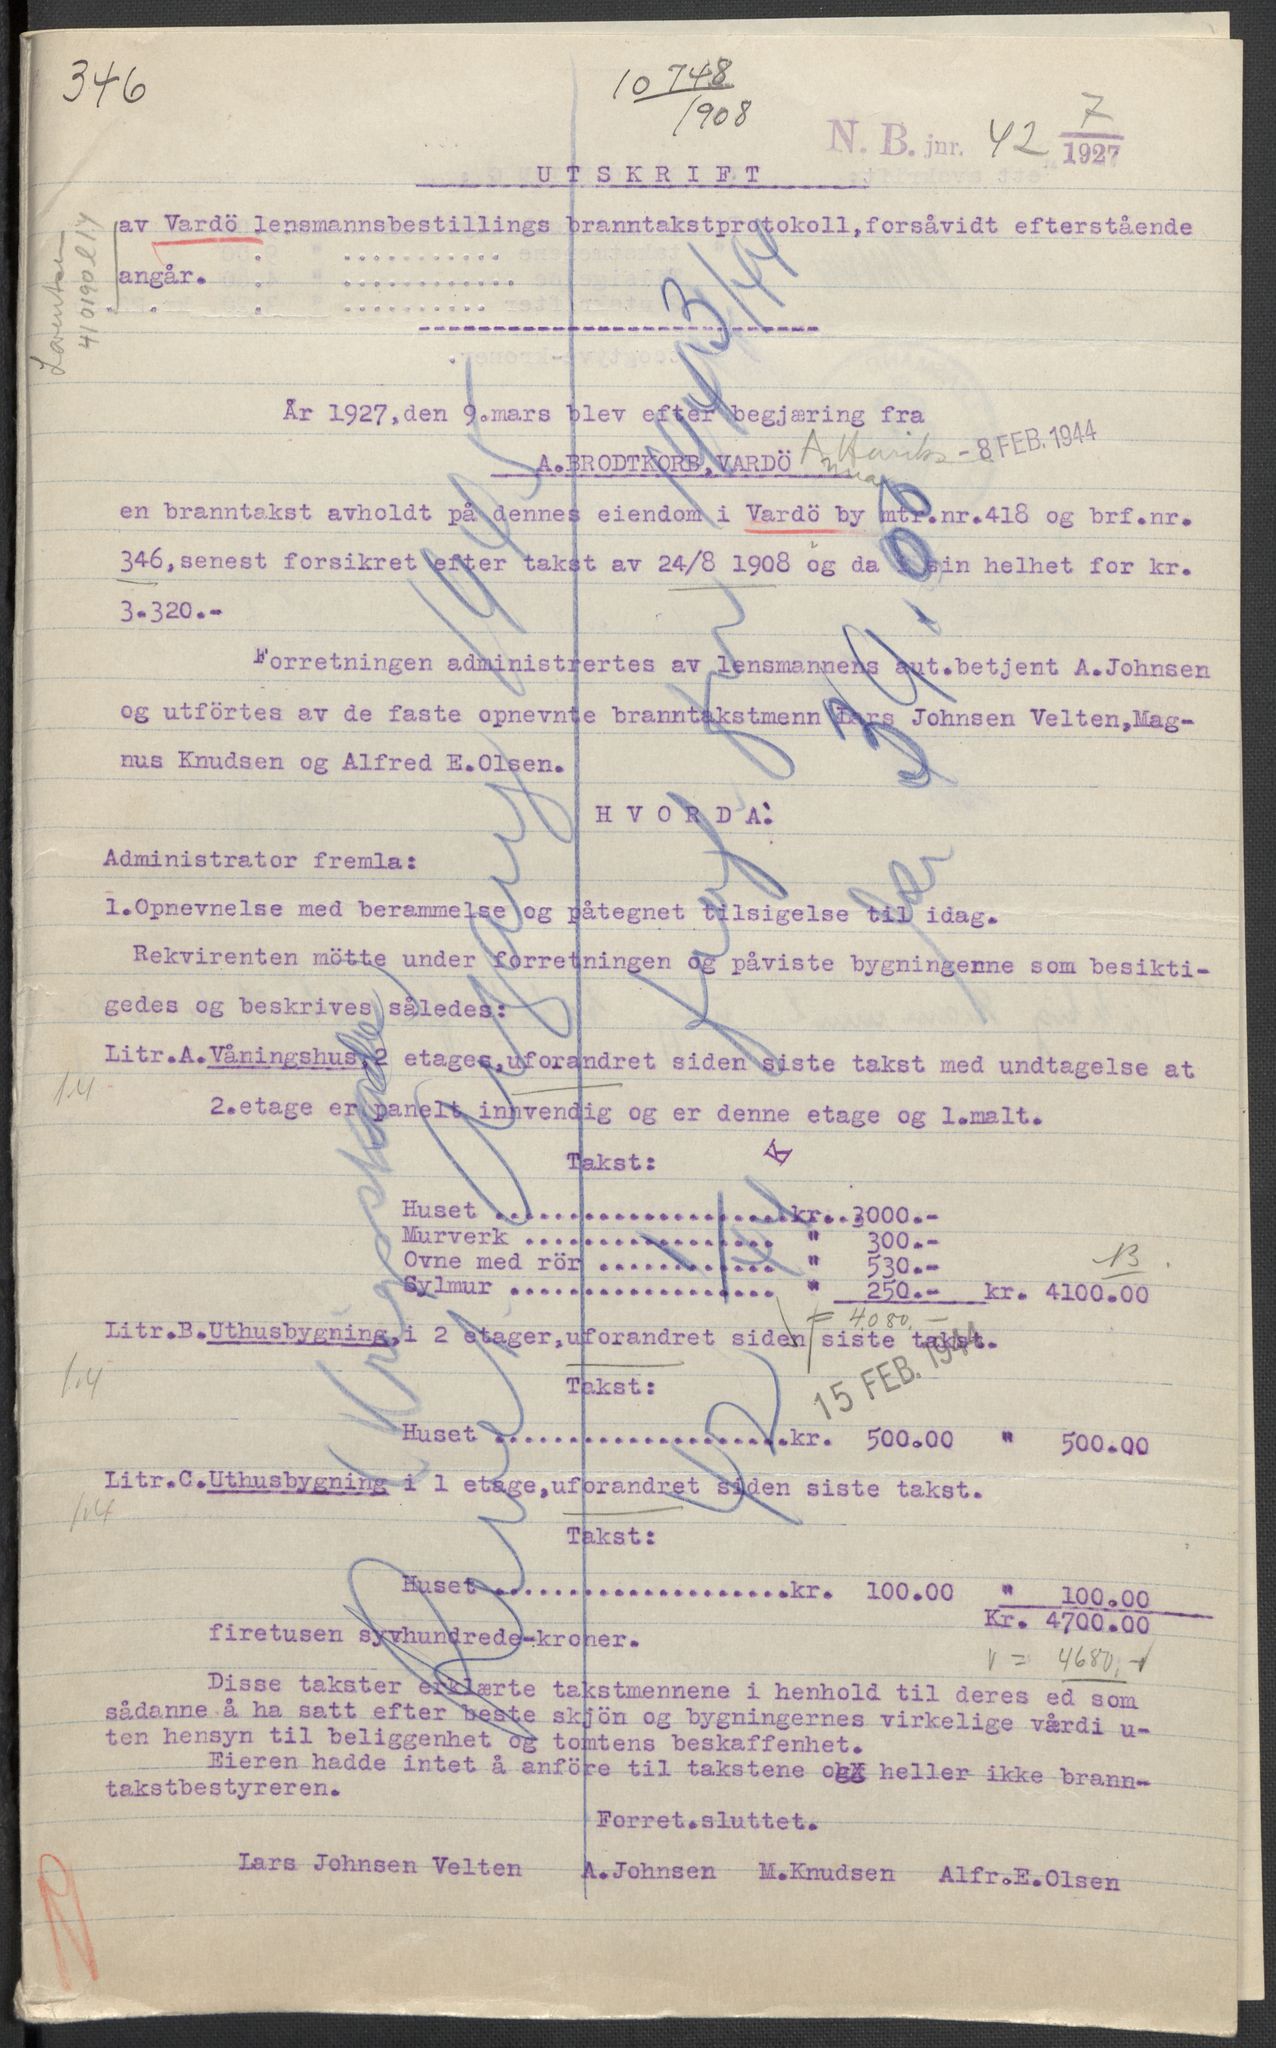 346
10748
1908
N. B. jnr. 42 7
1927
UTSKRIFT
av Vardö lensmannsbestillings branntakstprotokoll,forsåvidt efterstående
angår.
Lorentsen
År 1927,den 9.mars blev efter begjæring fra
A.BRODTKORB,VARDÖ
- 8 FEB. 1944
en branntakst avholdt på dennes eiendom i Vardö by mtr.nr.418 og brf.nr.
346,senest forsikret efter takst av 24/8 1908 og da i sin helhet for kr.
3.320.-
Forretningen administrertes av lensmannens aut.betjent A.Johnsen
og utförtes av de faste opnevnte branntakstmenn Lars Johnsen Velten,Mag-
nus Knudsen og Alfred E.Olsen.
HVORDA:
Administrator fremla:
1.Opnevnelse med berammelse og påtegnet tilsigelse til idag.
Rekvirenten mötte under forretningen og påviste bygningenne som besikti-
gedes og beskrives således:
Litr.A.Våningshus,2 etages,uforandret siden siste takst med undtagelse at
1.4
2.etage er panelt innvendig og er denne etage og 1.malt.
Takst:
Huset ....................kr. 3000.-
Murverk ................. " 300.-
Ovne med rör ............ " 530.-
B
Sylmur .................. " 250.- kr. 4100.00
= 4.080.-
Litr.B.Uthusbygning,i 2 etager,uforandret siden siste takst.
1.4
Takst:
15 FEB. 1944
Huset ....................kr. 500.00 " 500.00
Litr.C.Uthusbygning i 1 etage,uforandret siden siste takst.
1.4
Takst:
Huset ....................kr. 100.00 " 100.00
Kr. 4700.00
firetusen syvhundrede-kroner.
= 4680.-
Disse takster erklærte takstmennene i henhold til deres ed som
sådanne å ha satt efter beste skjön og bygningernes virkelige vårdi u-
ten hensyn til beliggenhet og tomtens beskaffenhet.
Eieren hadde intet å anföre til takstene og heller ikke brann-
takstbestyreren.
Forret.sluttet.
Lars Johnsen Velten A.Johnsen M.Knudsen Alfr.E.Olsen